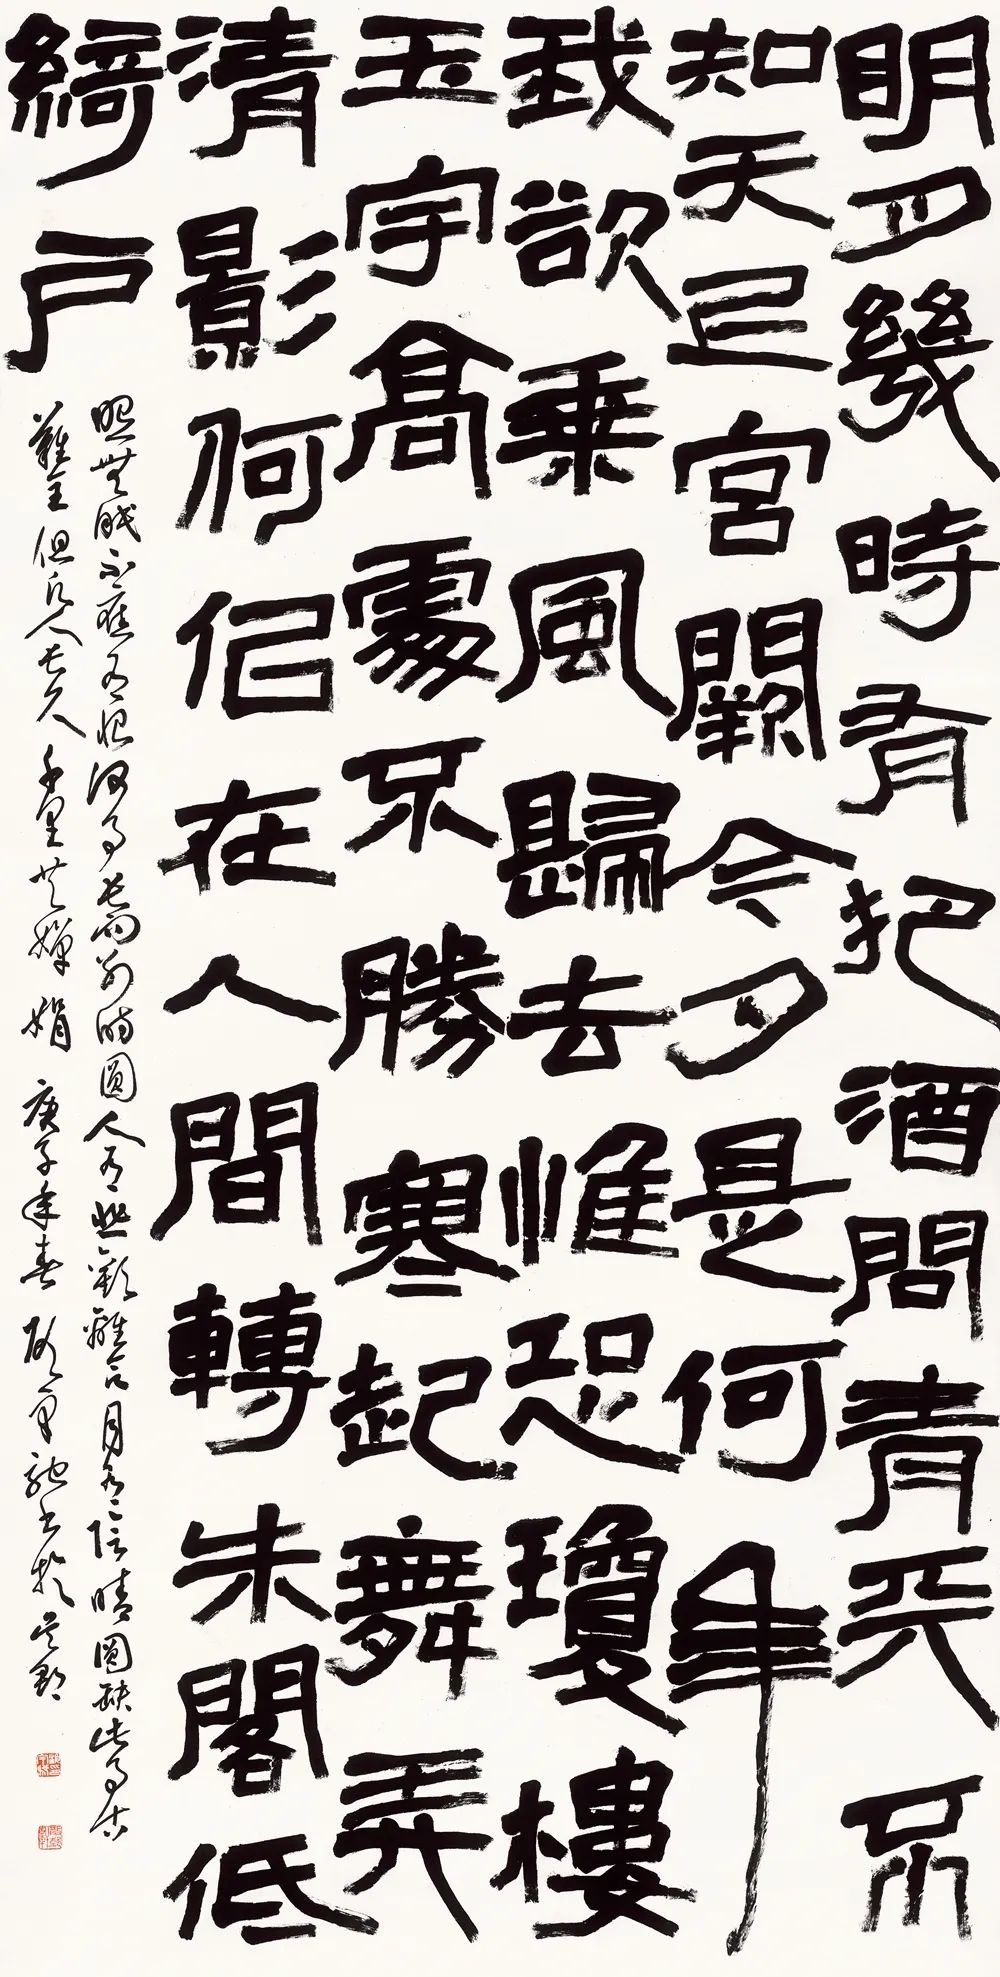 明月幾時有把酒問青天不
知天上宮闕今夕是何年
我欲乘風歸去惟恐瓊樓
玉宇高處不勝寒起舞弄
清影何似在人間轉朱閣低
綺戶
照無眠不應有恨何事長向別時圓人有悲歡離合月有陰晴圓缺此事古
難全但願人長久千里共嬋娟 庚子年春 書於